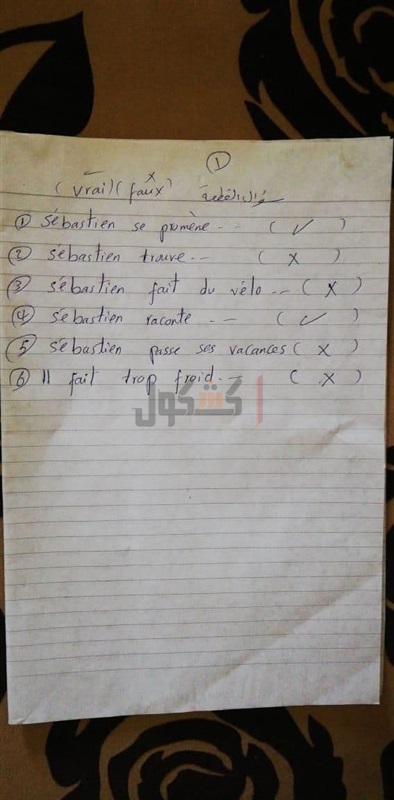 ①
(vrai) (faux) سؤال القطعة
✓ x
① Sébastien se promène -- ( ✓ )
② sébastien trouve -- ( x )
③ sébastien fait du vélo -- ( x )
④ sébastien raconte -- ( ✓ )
⑤ sébastien passe ses vacances ( x )
⑥ Il fait trop froid -- ( x )
كشكول